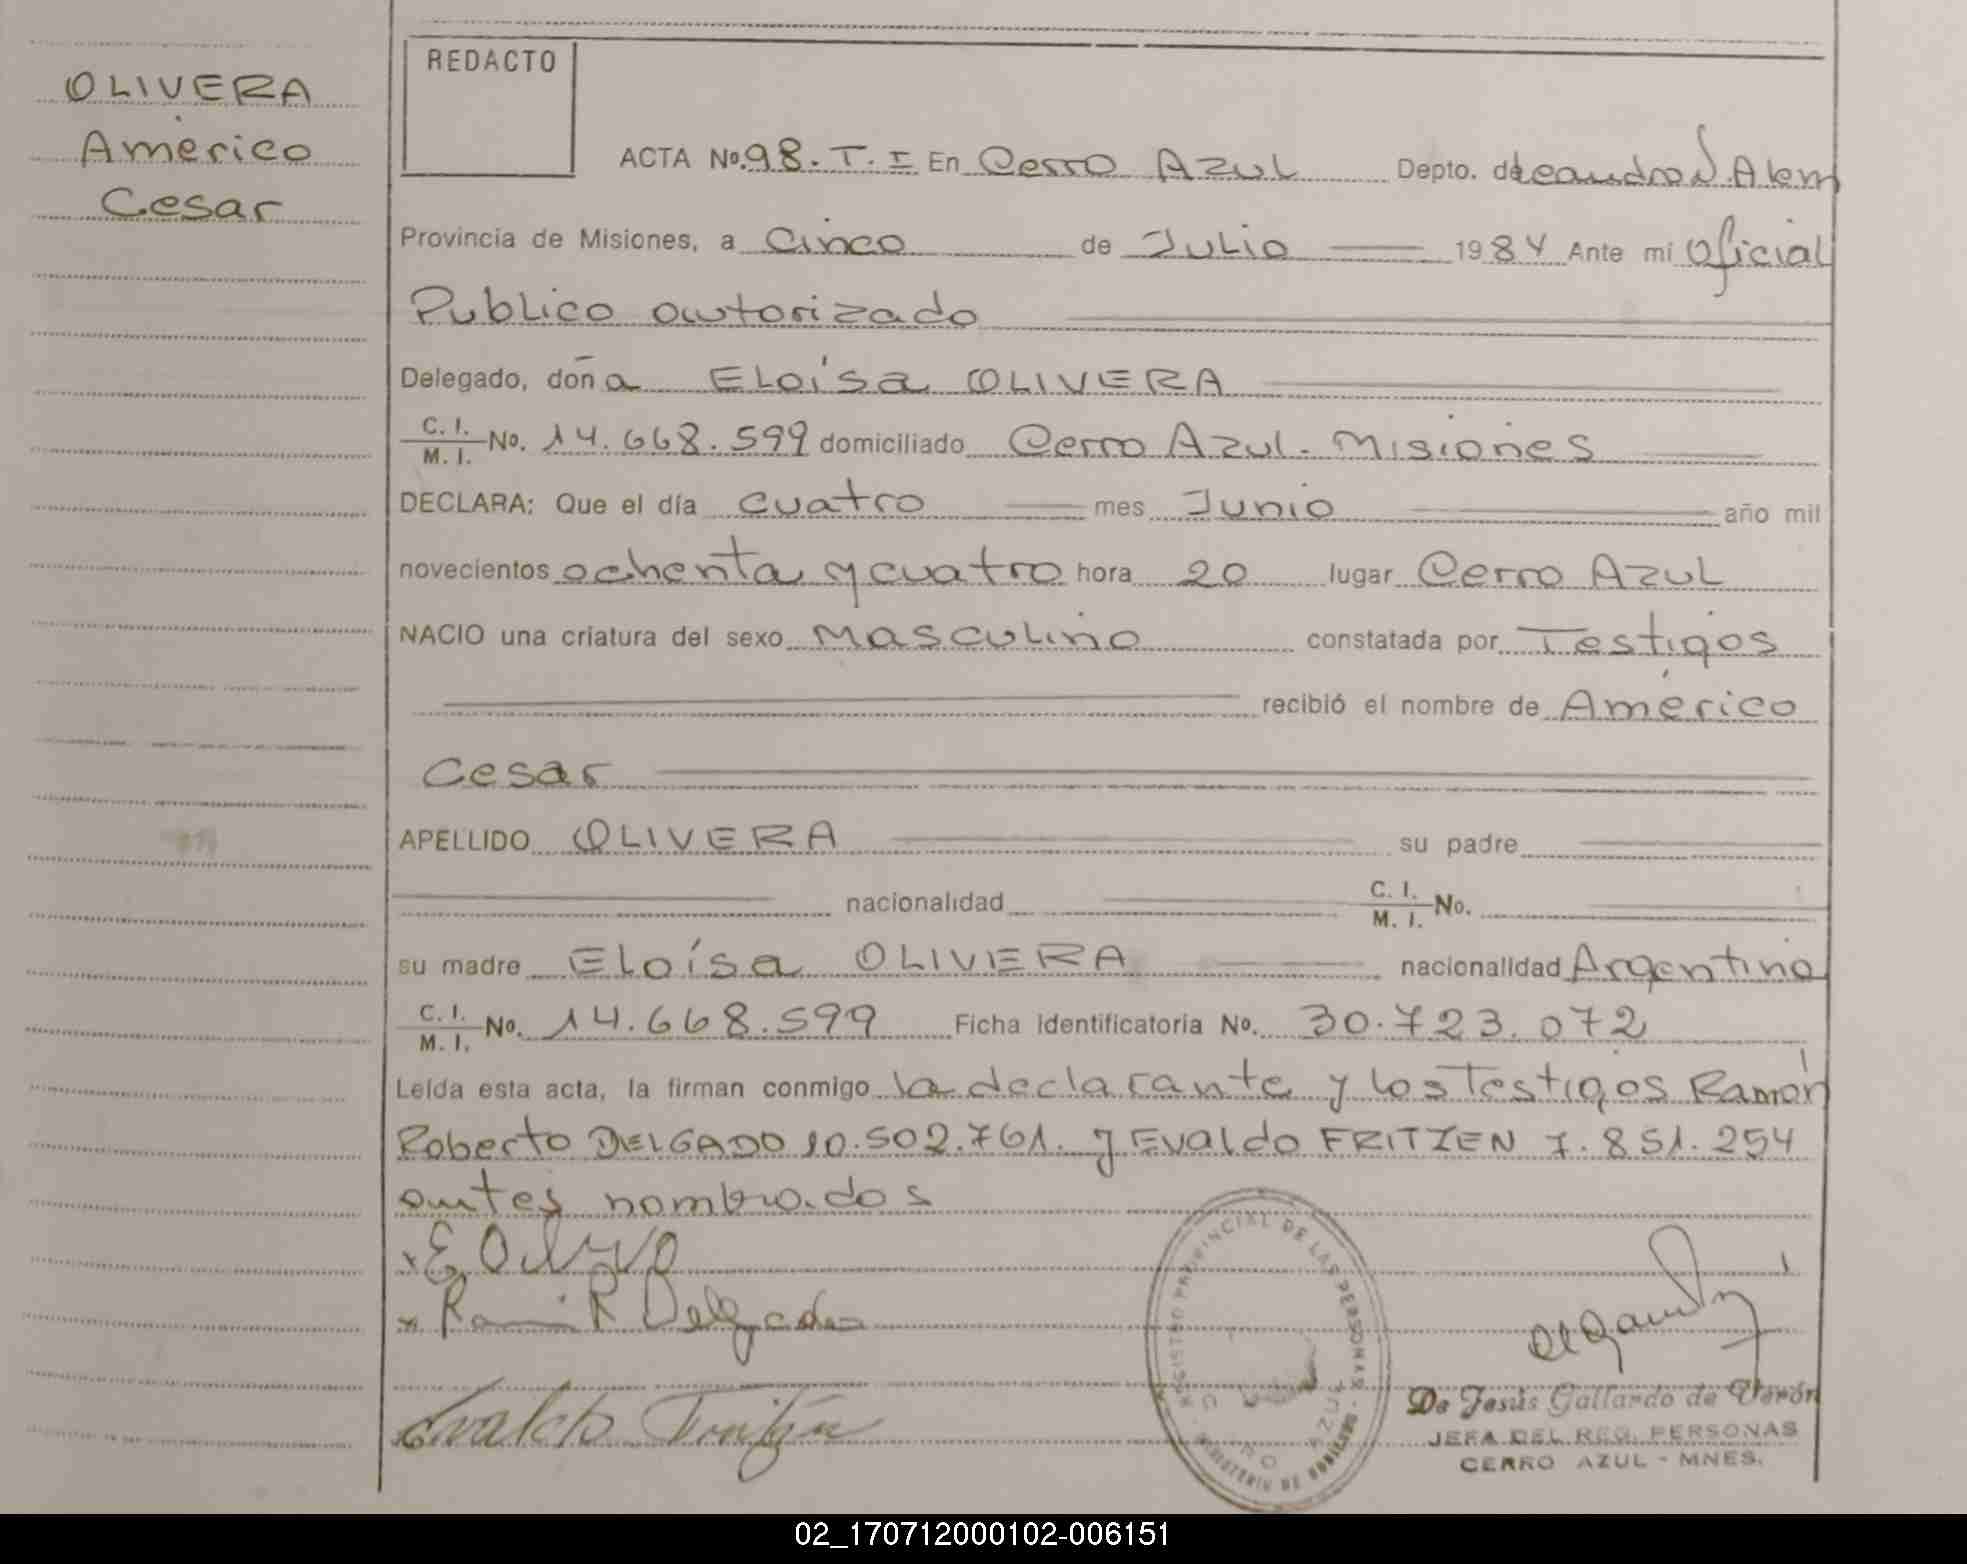 OLIVERA
Américo
Cesar
REDACTO
ACTA No. 98. T. I En Cerro Azul Depto. de Leandro N. Alem
Provincia de Misiones, a Cinco de Julio 1984 Ante mi Oficial
Publico autorizado
Delegado, doña ELoísa OLIVERA
C. I.
M. I. No. 14.668.599 domiciliado Cerro Azul. Misiones
DECLARA: Que el día cuatro mes Junio año mil
novecientos ochenta y cuatro hora 20 lugar Cerro AzuL
NACIO una criatura del sexo Masculino constatada por Testigos
recibió el nombre de Américo
Cesar
APELLIDO OLIVERA su padre
nacionalidad C. I.
M. I. No.
su madre Eloísa OLIVERA nacionalidad Argentina
C. I.
M. I. No. 14.668.599 Ficha identificatoria No. 30.723.072
Leída esta acta, la firman conmigo la declarante y los Testigos Ramón
Roberto DELGADO 10.502.761. y Evaldo FRITZEN 7.851.254
antes nombrados
E Olivera
Ramón R Delgado
Evaldo Fritzen
REGISTRO PROVINCIAL DE LAS PERSONAS
CERRO AZUL
De Jesús Gallardo de Verón
JEFA DEL REG. PERSONAS
CERRO AZUL - MNES.
02_170712000102-006151